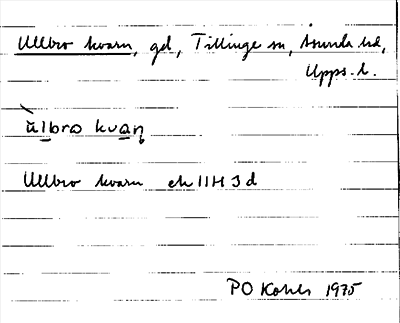 Ullbro kvarn, gd, Tillinge sn, Åsunda hd,
Upps. l.
ùlbro kvaɳ
Ullbro kvarn ek 11H 3d
PO Kohls 1975